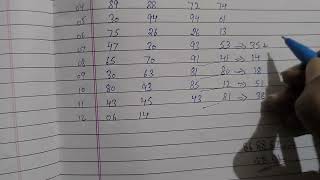 04 89 88 72 74
05 30 94 94 01
06 75 26 26 13
07 47 30 93 53 ⇒ 35
08 65 70 91 41 ⇒ 14
09 30 63 81 80 ⇒ 18
10 80 43 85 12 ⇒ 51
11 43 45 43 81 ⇒ 38
12 06 14